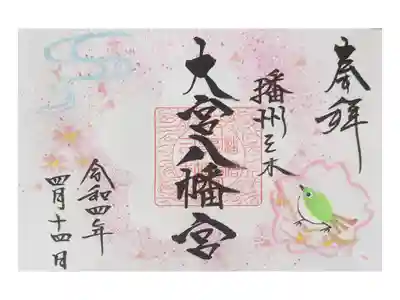 奉拝
播州三木
大宮八幡宮
令和四年
四月十四日